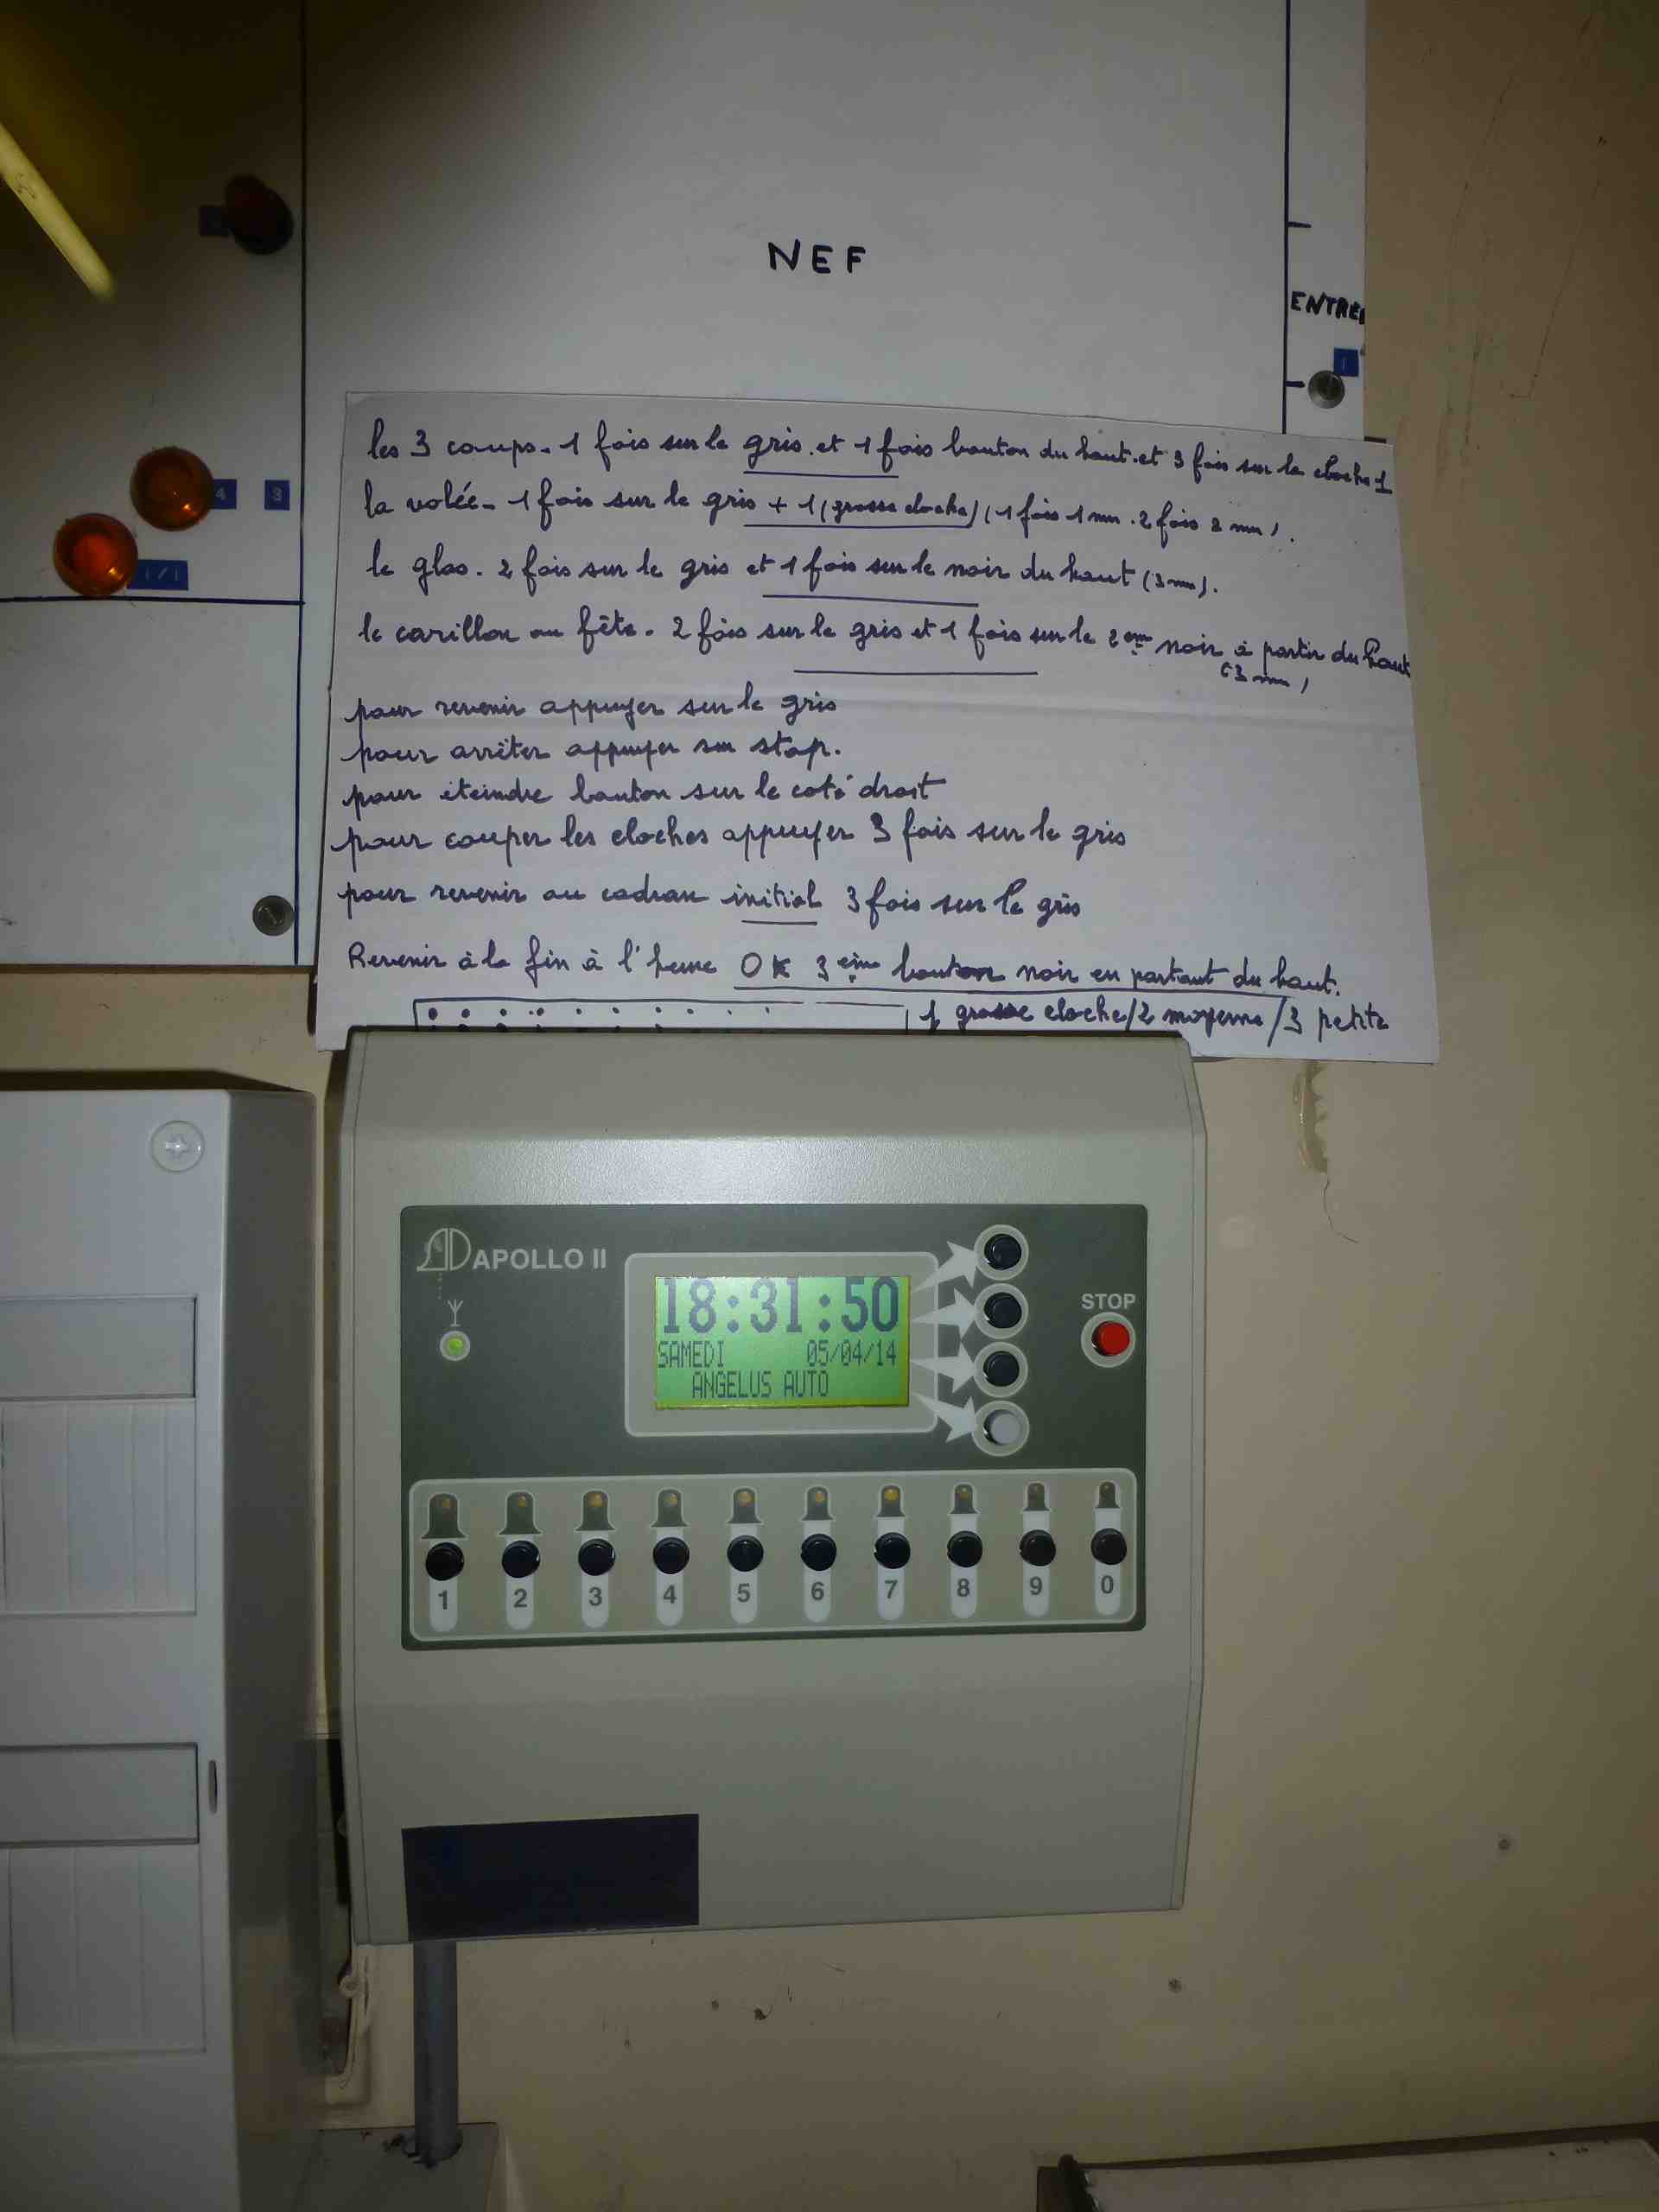 NEF
ENTRE
1
4 3
1/1
les 3 coups. 1 fois sur le gris. et 1 fois bouton du haut. et 3 fois sur la cloche 1
la volée - 1 fois sur le gris + 1 (grosse cloche) (1 fois 1 mn . 2 fois 2 mn).
le glas. 2 fois sur le gris et 1 fois sur le noir du haut (3 mn).
le carillon ou fête. 2 fois sur le gris et 1 fois sur le 2em noir à partir du haut
(3 mn)
pour revenir appuyer sur le gris
pour arrêter appuyer sur stop.
pour éteindre bouton sur le coté droit
pour couper les cloches appuyer 3 fois sur le gris
pour revenir au cadran initial 3 fois sur le gris
Revenir à la fin à l'heure OK 3eime bouton noir en partant du haut.
1 grosse cloche/2 moyenne/3 petite
APOLLO II
18:31:50
SAMEDI 05/04/14
ANGELUS AUTO
STOP
1 2 3 4 5 6 7 8 9 0